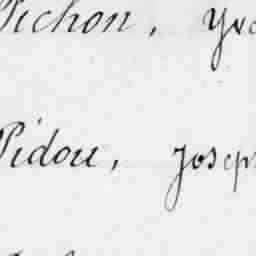 Pichon, Yvo
Pidou, Josep